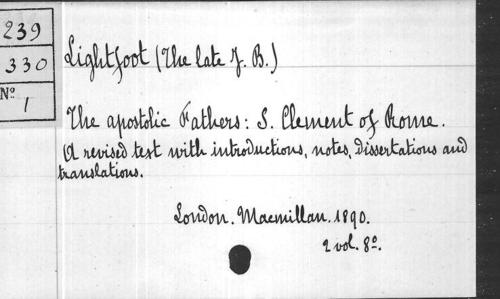 239
330
Nº 1
Lightfoot (The late J. B.)
The apostolic Fathers: S. Clement of Rome.
(A revised text with introductions, notes, dissertations and
translations.
London. Macmillan. 1890.
2 vol. 8º.